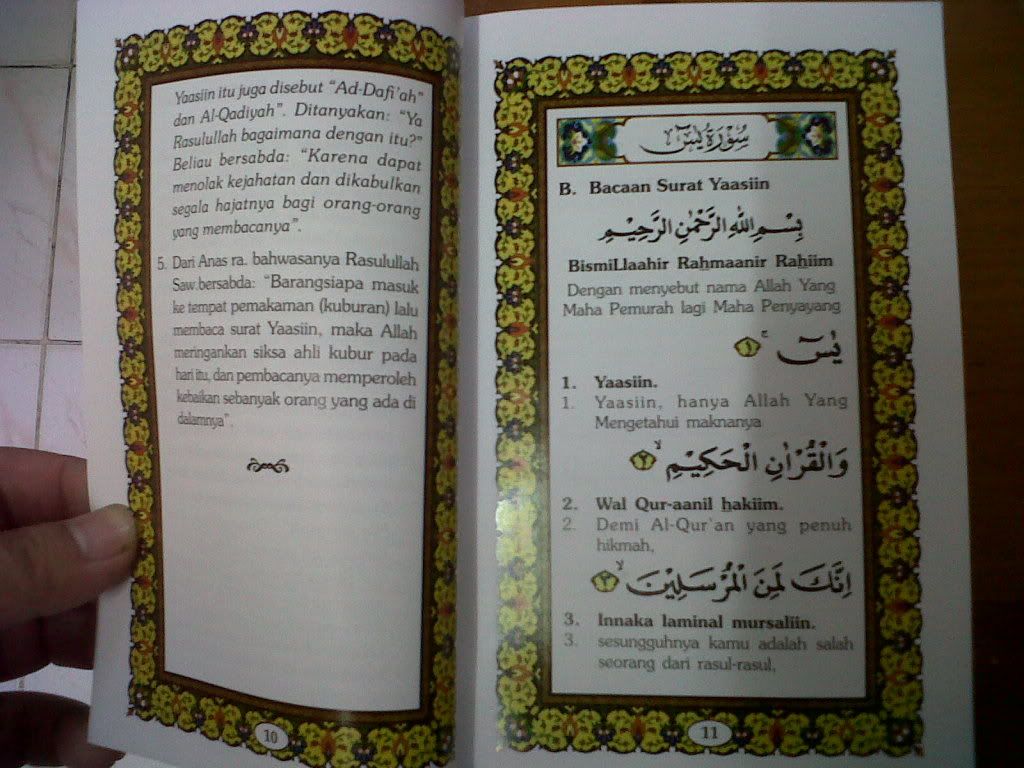 Yaasiin itu juga disebut "Ad-Dafi'ah"
dan Al-Qadiyah". Ditanyakan: "Ya
Rasulullah bagaimana dengan itu?"
Beliau bersabda: "Karena dapat
menolak kejahatan dan dikabulkan
segala hajatnya bagi orang-orang
yang membacanya".
5. Dari Anas ra. bahwasanya Rasulullah
Saw.bersabda: "Barangsiapa masuk
ke tempat pemakaman (kuburan) lalu
membaca surat Yaasiin, maka Allah
meringankan siksa ahli kubur pada
hari itu, dan pembacanya memperoleh
kebaikan sebanyak orang yang ada di
dalamnya".
10
سُوْرَةُ يٰسٓ
B. Bacaan Surat Yaasiin
بِسْمِ اللّٰهِ الرَّحْمٰنِ الرَّحِيْمِ
BismiLlaahir Rahmaanir Rahiim
Dengan menyebut nama Allah Yang
Maha Pemurah lagi Maha Penyayang
يٰسٓ ۚ ﴿١﴾
1. Yaasiin.
1. Yaasiin, hanya Allah Yang
Mengetahui maknanya
وَالْقُرْاٰنِ الْحَكِيْمِ ۙ ﴿٢﴾
2. Wal Qur-aanil hakiim.
2. Demi Al-Qur'an yang penuh
hikmah,
اِنَّكَ لَمِنَ الْمُرْسَلِيْنَ ۙ ﴿٣﴾
3. Innaka laminal mursaliin.
3. sesungguhnya kamu adalah salah
seorang dari rasul-rasul,
11